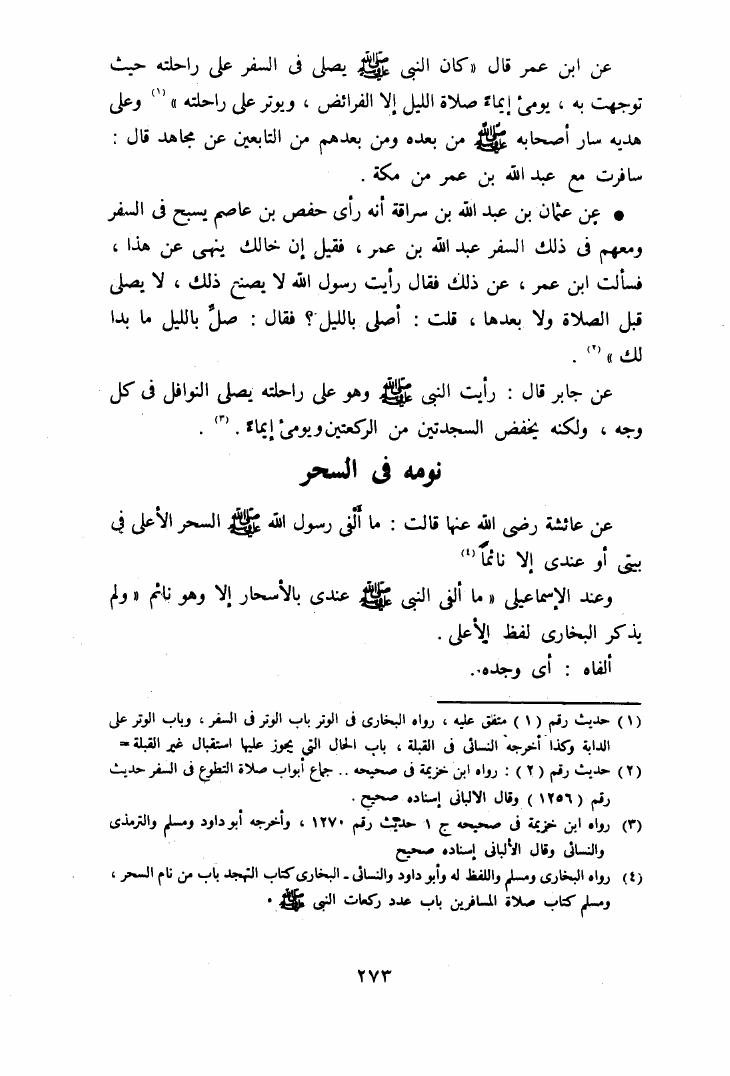 عن ابن عمر قال « كان النبى ﷺ يصلى فى السفر على راحلته حيث
توجهت به ، يومئ إيماءً صلاة الليل إلا الفرائض ، ويوتر على راحلته » (١) وعلى
هديه سار أصحابه ﷺ من بعده ومن بعدهم من التابعين عن مجاهد قال :
سافرت مع عبد الله بن عمر من مكة .
● عن عثمان بن عبد الله بن سراقة أنه رأى حفص بن عاصم يسبح فى السفر
ومعهم فى ذلك السفر عبد الله بن عمر ، فقيل إن خالك ينهى عن هذا ،
فسألت ابن عمر ، عن ذلك فقال رأيت رسول الله لا يصنع ذلك ، لا يصلى
قبل الصلاة ولا بعدها ، قلت : أصلى بالليل ؟ فقال : صلِّ بالليل ما بدا
لك » (٢) .
عن جابر قال : رأيت النبى ﷺ وهو على راحلته يصلى النوافل فى كل
وجه ، ولكنه يخفض السجدتين من الركعتين ويومئ إيماءً . (٣) .
نومه فى السحر
عن عائشة رضى الله عنها قالت : ما أَلْفى رسول الله ﷺ السحر الأعلى في
بيتى أو عندى إلا نائماً (٤)
وعند الإسماعيلى « ما ألفى النبى ﷺ عندى بالأسحار إلا وهو نائم « ولم
يذكر البخارى لفظ الأعلى .
ألفاه : أى وجده .
(١) حديث رقم ( ١ ) متفق عليه ، رواه البخارى فى الوتر باب الوتر فى السفر ، وباب الوتر على
الدابة وكذا أخرجه النسائى فى القبلة ، باب الحال التي يجوز عليها استقبال غير القبلة =
(٢) حديث رقم ( ٢ ) : رواه ابن خزيمة فى صحيحه .. جماع أبواب صلاة التطوع فى السفر حديث
رقم ( ١٢٥٦ ) وقال الالبانى إسناده صحيح .
(٣) رواه ابن خزيمة فى صحيحه ج ١ حديث رقم ١٢٧٠ ، وأخرجه أبو داود ومسلم والترمذى
والنسائى وقال الألبانى إسناده صحيح
(٤) رواه البخارى ومسلم واللفظ له وأبو داود والنسائى ـ البخارى كتاب التهجد باب من نام السحر ،
ومسلم كتاب صلاة المسافرين باب عدد ركعات النبى ﷺ .
٢٧٣